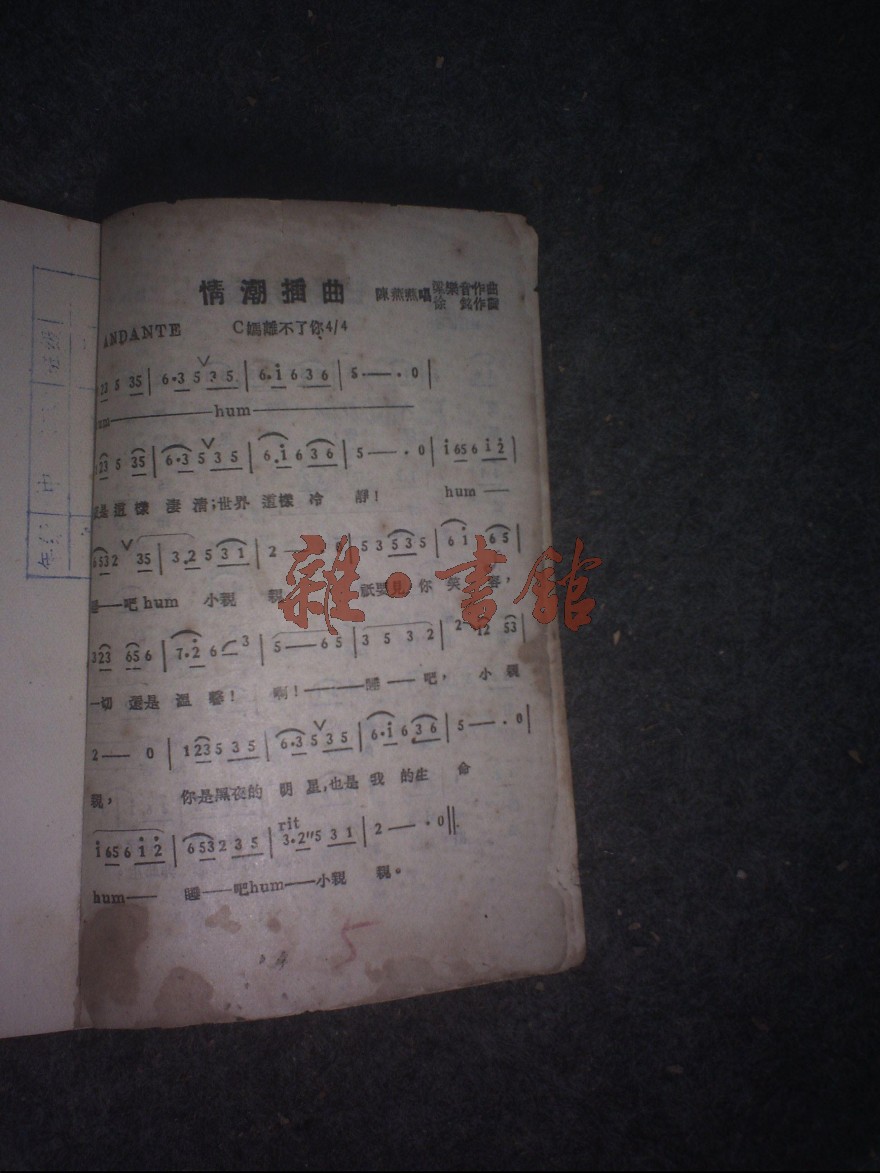 情潮插曲
陳燕燕唱 梁樂音作曲
作詞
ANDANTE C調離不了你 4/4
23 5 35 | 6·3 5 3 5 | 6·i 6 3 6 | 5—·0 |
um—hum—
23 5 35 | 6·3 5 3 5 | 6·i 6 3 6 | 5—·0 | i 65 6 i 2 |
是這樣淒清;世界這樣冷靜! hum—
6532 35 | 3·2 5 3 1 | 2—0 | 5 3 5 3 5 | 6 i 6 5 |
睡—吧hum 小親親 祇要見你笑容,
323 65 6 | 7·2 6—3 | 5—6 5 | 3 5 3 2 | 2—12 53 |
一切還是溫馨! 啊!—睡—吧, 小親
2—0 | 1 23 5 3 5 | 6·3 5 3 5 | 6·i 6 3 6 | 5—·0 |
親, 你是黑夜的明星,也是我的生命
i 65 6 i 2 | 6532 3 5 | 3·2"5 3 1 | 2—·0 ||
rit
hum—睡—吧hum—小親親。
5
雜·書館